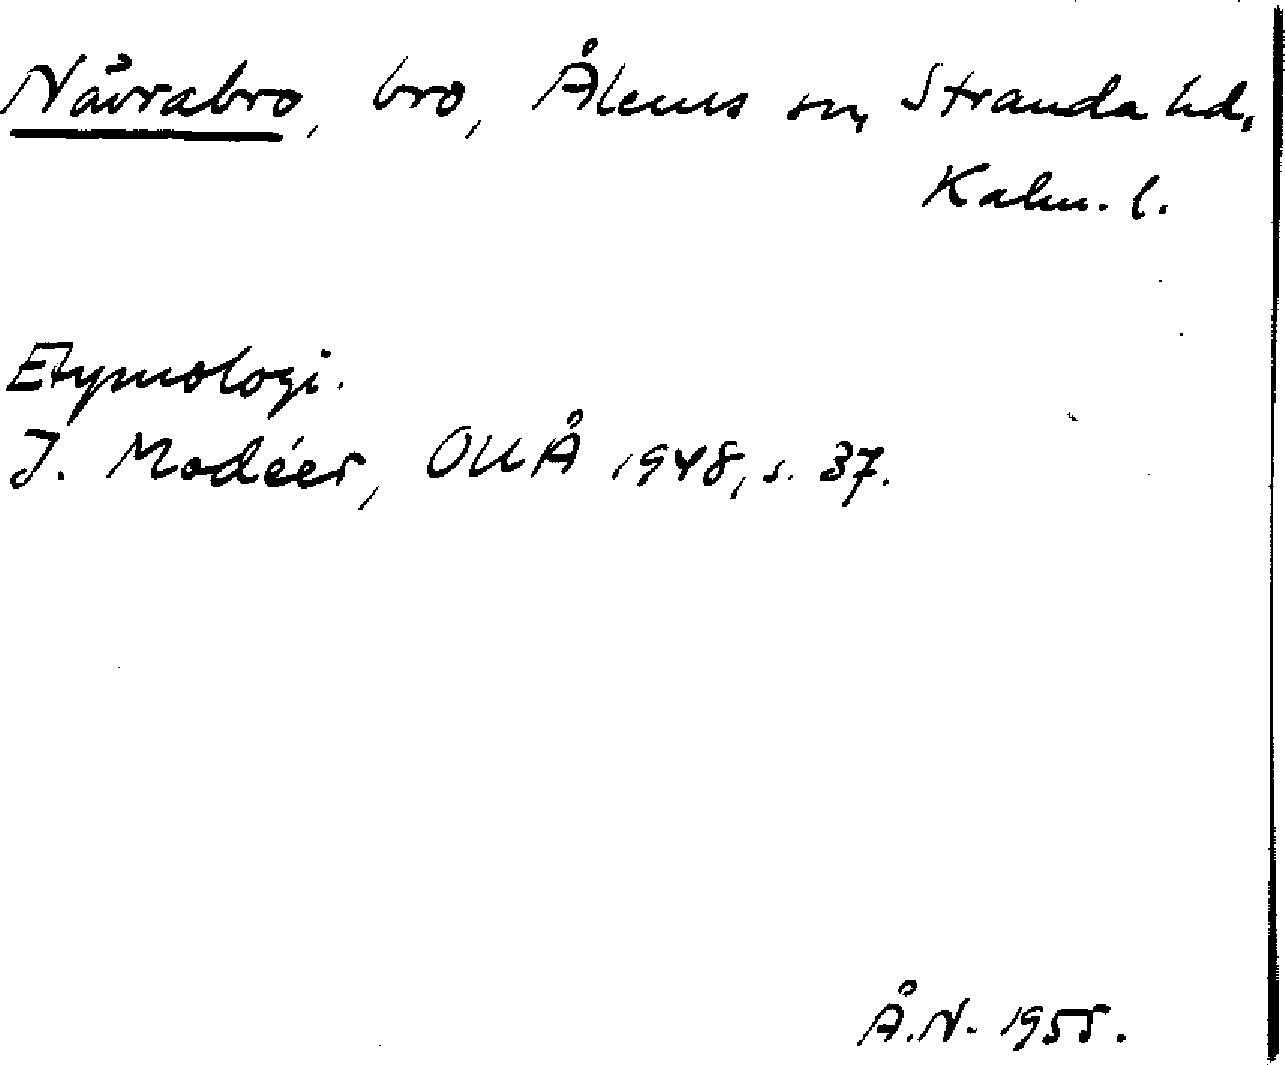 Nåvrabro, bro, Ålems sn, Stranda hd,
Kalm. l.
Etymologi.
I. Modéer, OUÅ 1948, s. 37.
Å.N. 1955.